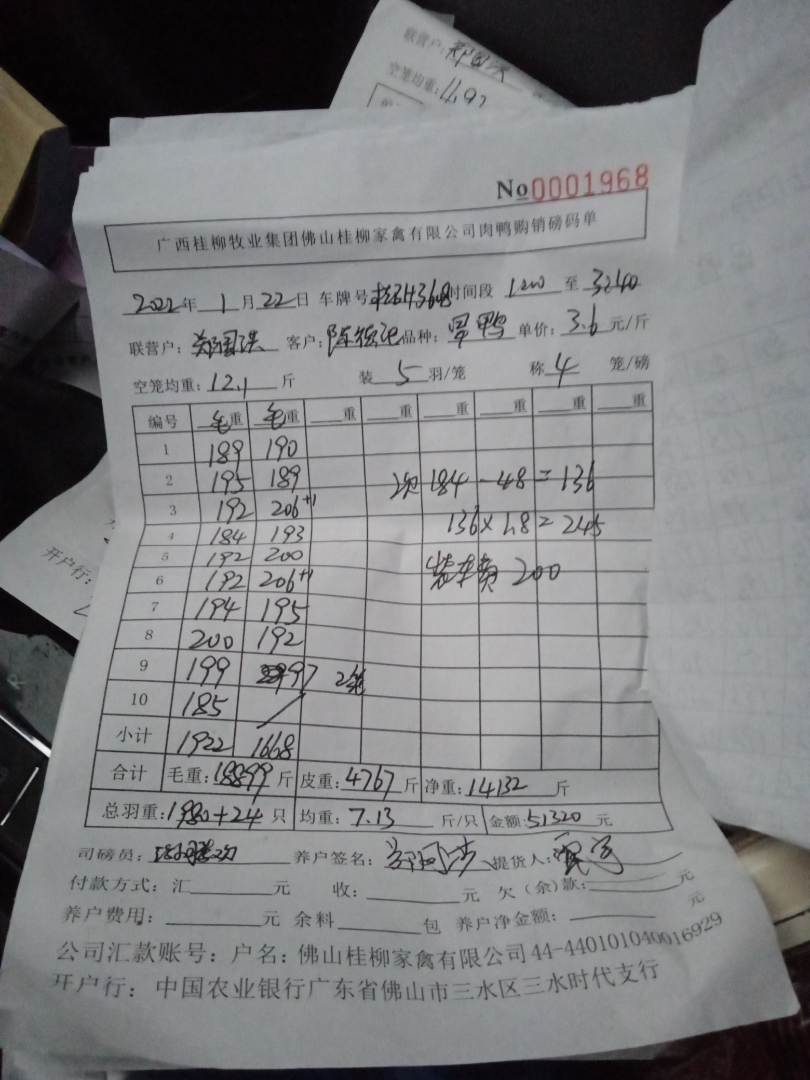 联营户:
空笼均重: 11.92
No 0001968
广西桂柳牧业集团佛山桂柳家禽有限公司肉鸭购销磅码单
2022年 1月 22日 车牌号 时间段 1200 至 3240
联营户: 郑国洪 客户: 品种: 单价: 3.6 元/斤
空笼均重: 12.1 斤 装 5 羽/笼 称 4 笼/磅
编号 毛重 毛重 重 重 重 重 重 重
1 189 190
2 195 189 次 184-48=136
3 192 206+1
4 184 193 136×1.8=245
5 192 200
6 192 206+1 装车费 200
7 194 195
8 200 192
9 199 97 2笼
10 185
小计 1922 1668
合计 毛重: 18899 斤 皮重: 4767 斤 净重: 14132 斤
总羽重: 1980+24 只 均重: 7.13 斤/只 金额: 51320 元
司磅员: 养户签名: 提货人:
付款方式: 汇 元 收: 元 欠(余)款: 元
养户费用: 元 余料 包 养户净金额: 元
公司汇款账号: 户名: 佛山桂柳家禽有限公司44-440101040016929
开户行: 中国农业银行广东省佛山市三水区三水时代支行
开户行: